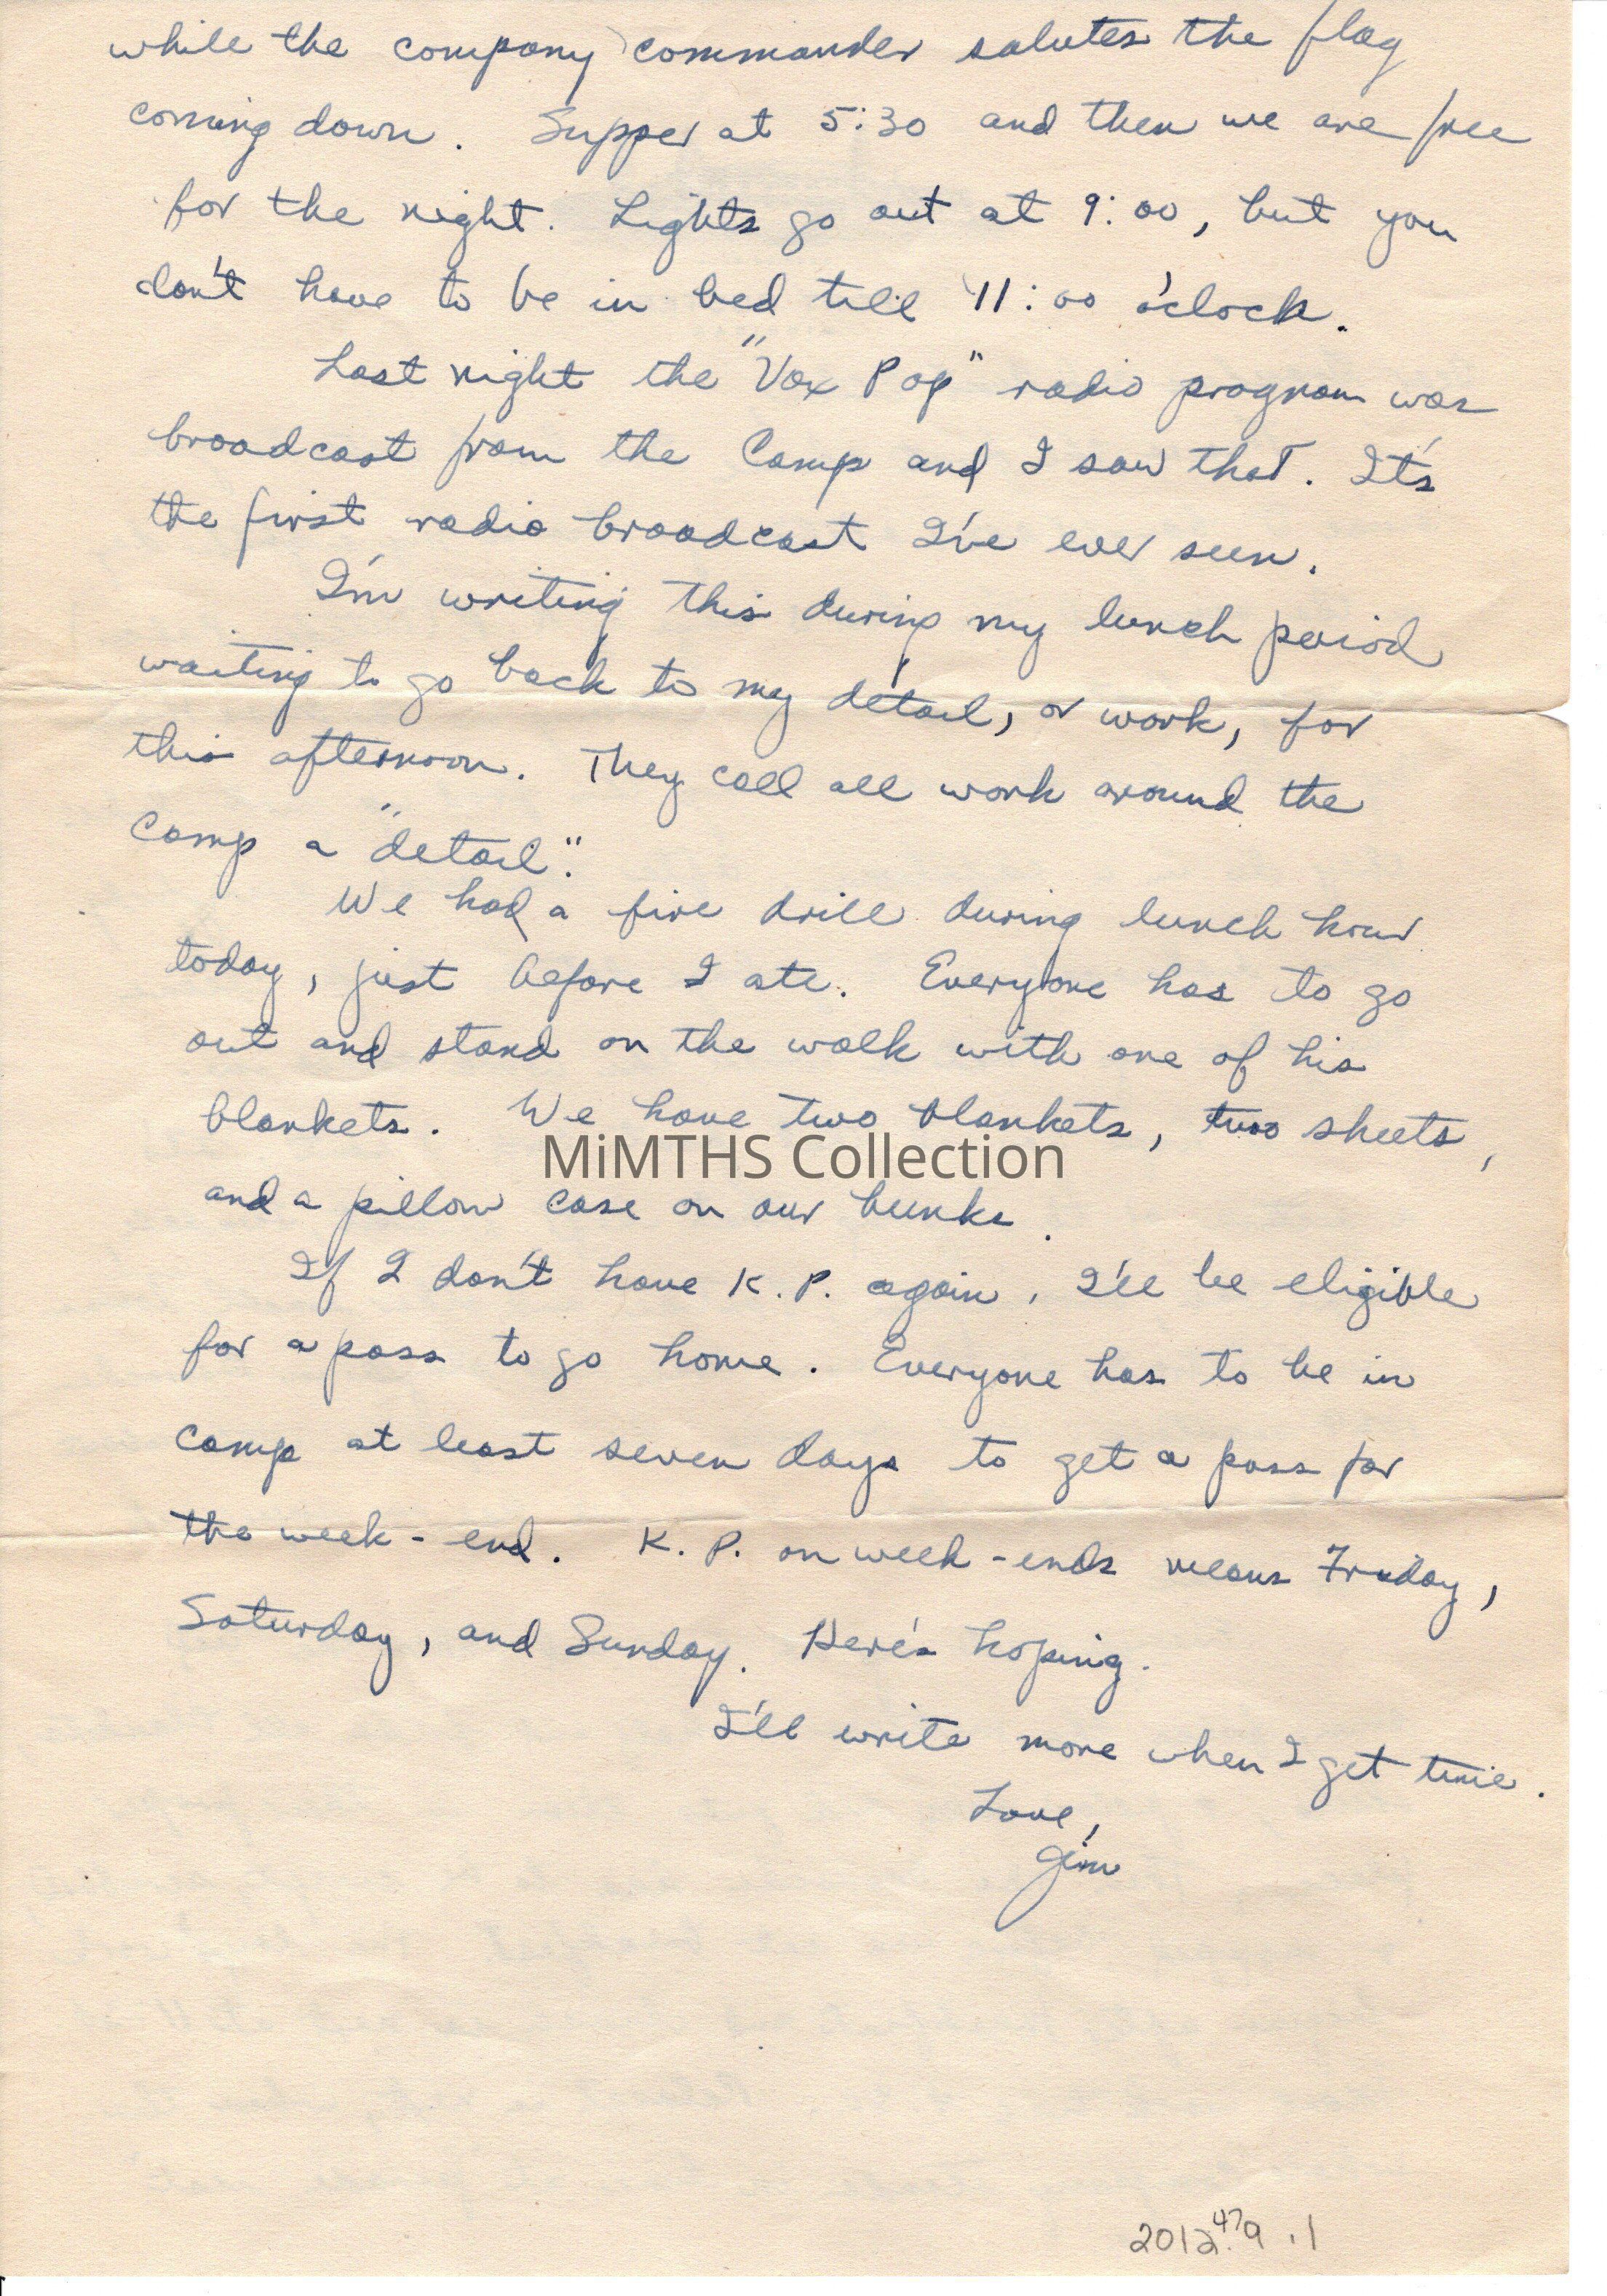 while the company commander salutes the flag
coming down. Supper at 5:30 and then we are free
for the night. Lights go out at 9:00, but you
don't have to be in bed till 11:00 o'clock.
Last night the "Vox Pop" radio program was
broadcast from the Camp and I saw that. It's
the first radio broadcast I've ever seen.
I'm writing this during my lunch period
waiting to go back to my detail, or work, for
this afternoon. They call all work around the
camp a "detail".
We had a fire drill during lunch hour
today, just before I ate. Everyone has to go
out and stand on the walk with one of his
blankets. We have two blankets, two sheets,
MiMTHS Collection
and a pillow case on our bunks.
If I don't have K.P. again, I'll be eligible
for a pass to go home. Everyone has to be in
camp at least seven days to get a pass for
the week-end. K.P. on week-ends means Friday,
Saturday, and Sunday. Here's hoping.
I'll write more when I get time.
Love,
Jim
2012.479.1